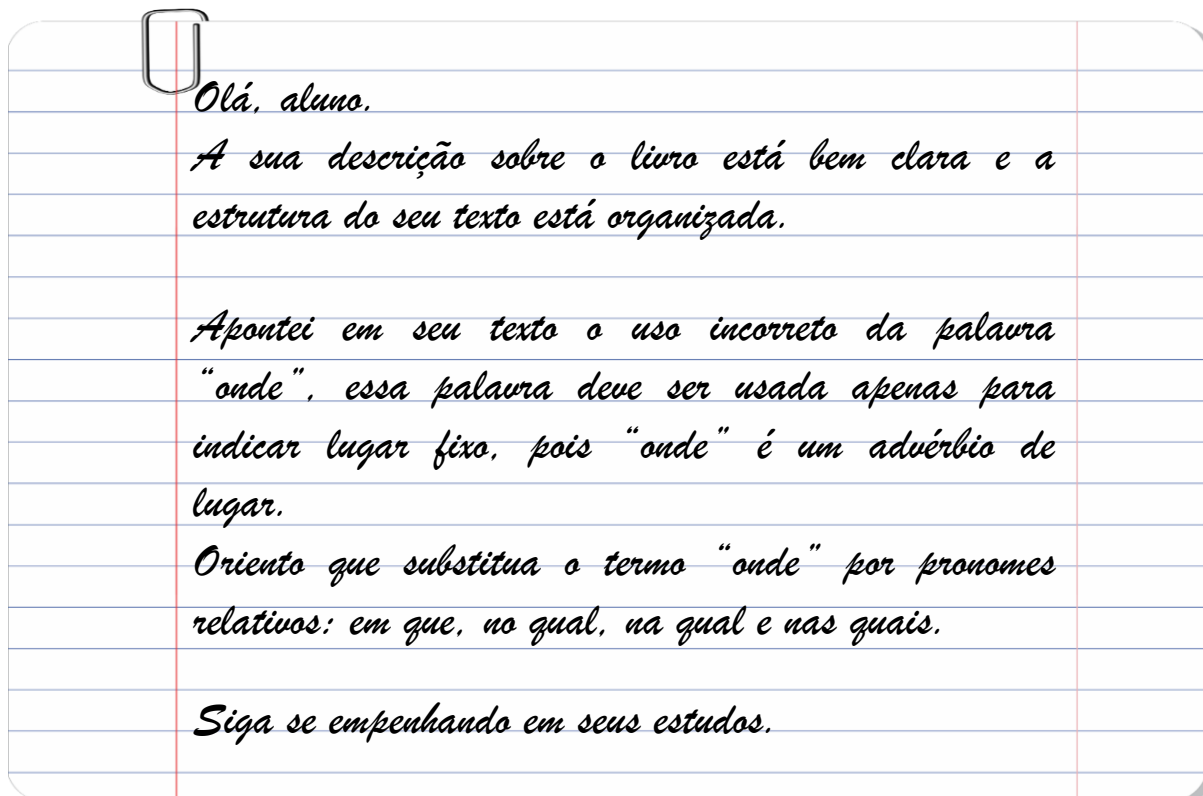 Olá, aluno.
A sua descrição sobre o livro está bem clara e a
estrutura do seu texto está organizada.
Apontei em seu texto o uso incorreto da palavra
“onde”, essa palavra deve ser usada apenas para
indicar lugar fixo, pois “onde” é um advérbio de
lugar.
Oriento que substitua o termo “onde” por pronomes
relativos: em que, no qual, na qual e nas quais.
Siga se empenhando em seus estudos.